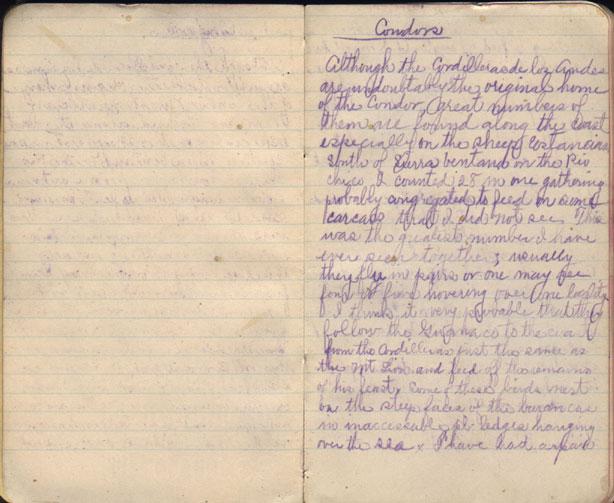 Condors
Although the Cordilleras de los Andes
are undoubtably the original home
of the Condor, Great numbers of
them are found along the coast
especially on the sheep estancias
South of Sierra bentana on the Rio
chico I counted 28 in one gathering
probably congregated to feed on some
carcass that I did not see This
was the greatest number I have
ever seen together & usually
they fly in pairs or one may see
four or five hovering over one locality
I think it very probable that they
follow the Guanaco to the coast
from the Cordilleras just the same as
the Mt Lion and feed of the remains
of his feast, Some of these birds nest
on the steep faces of the barancas
in inaccessable ledges hanging
over the sea. I have had a pair